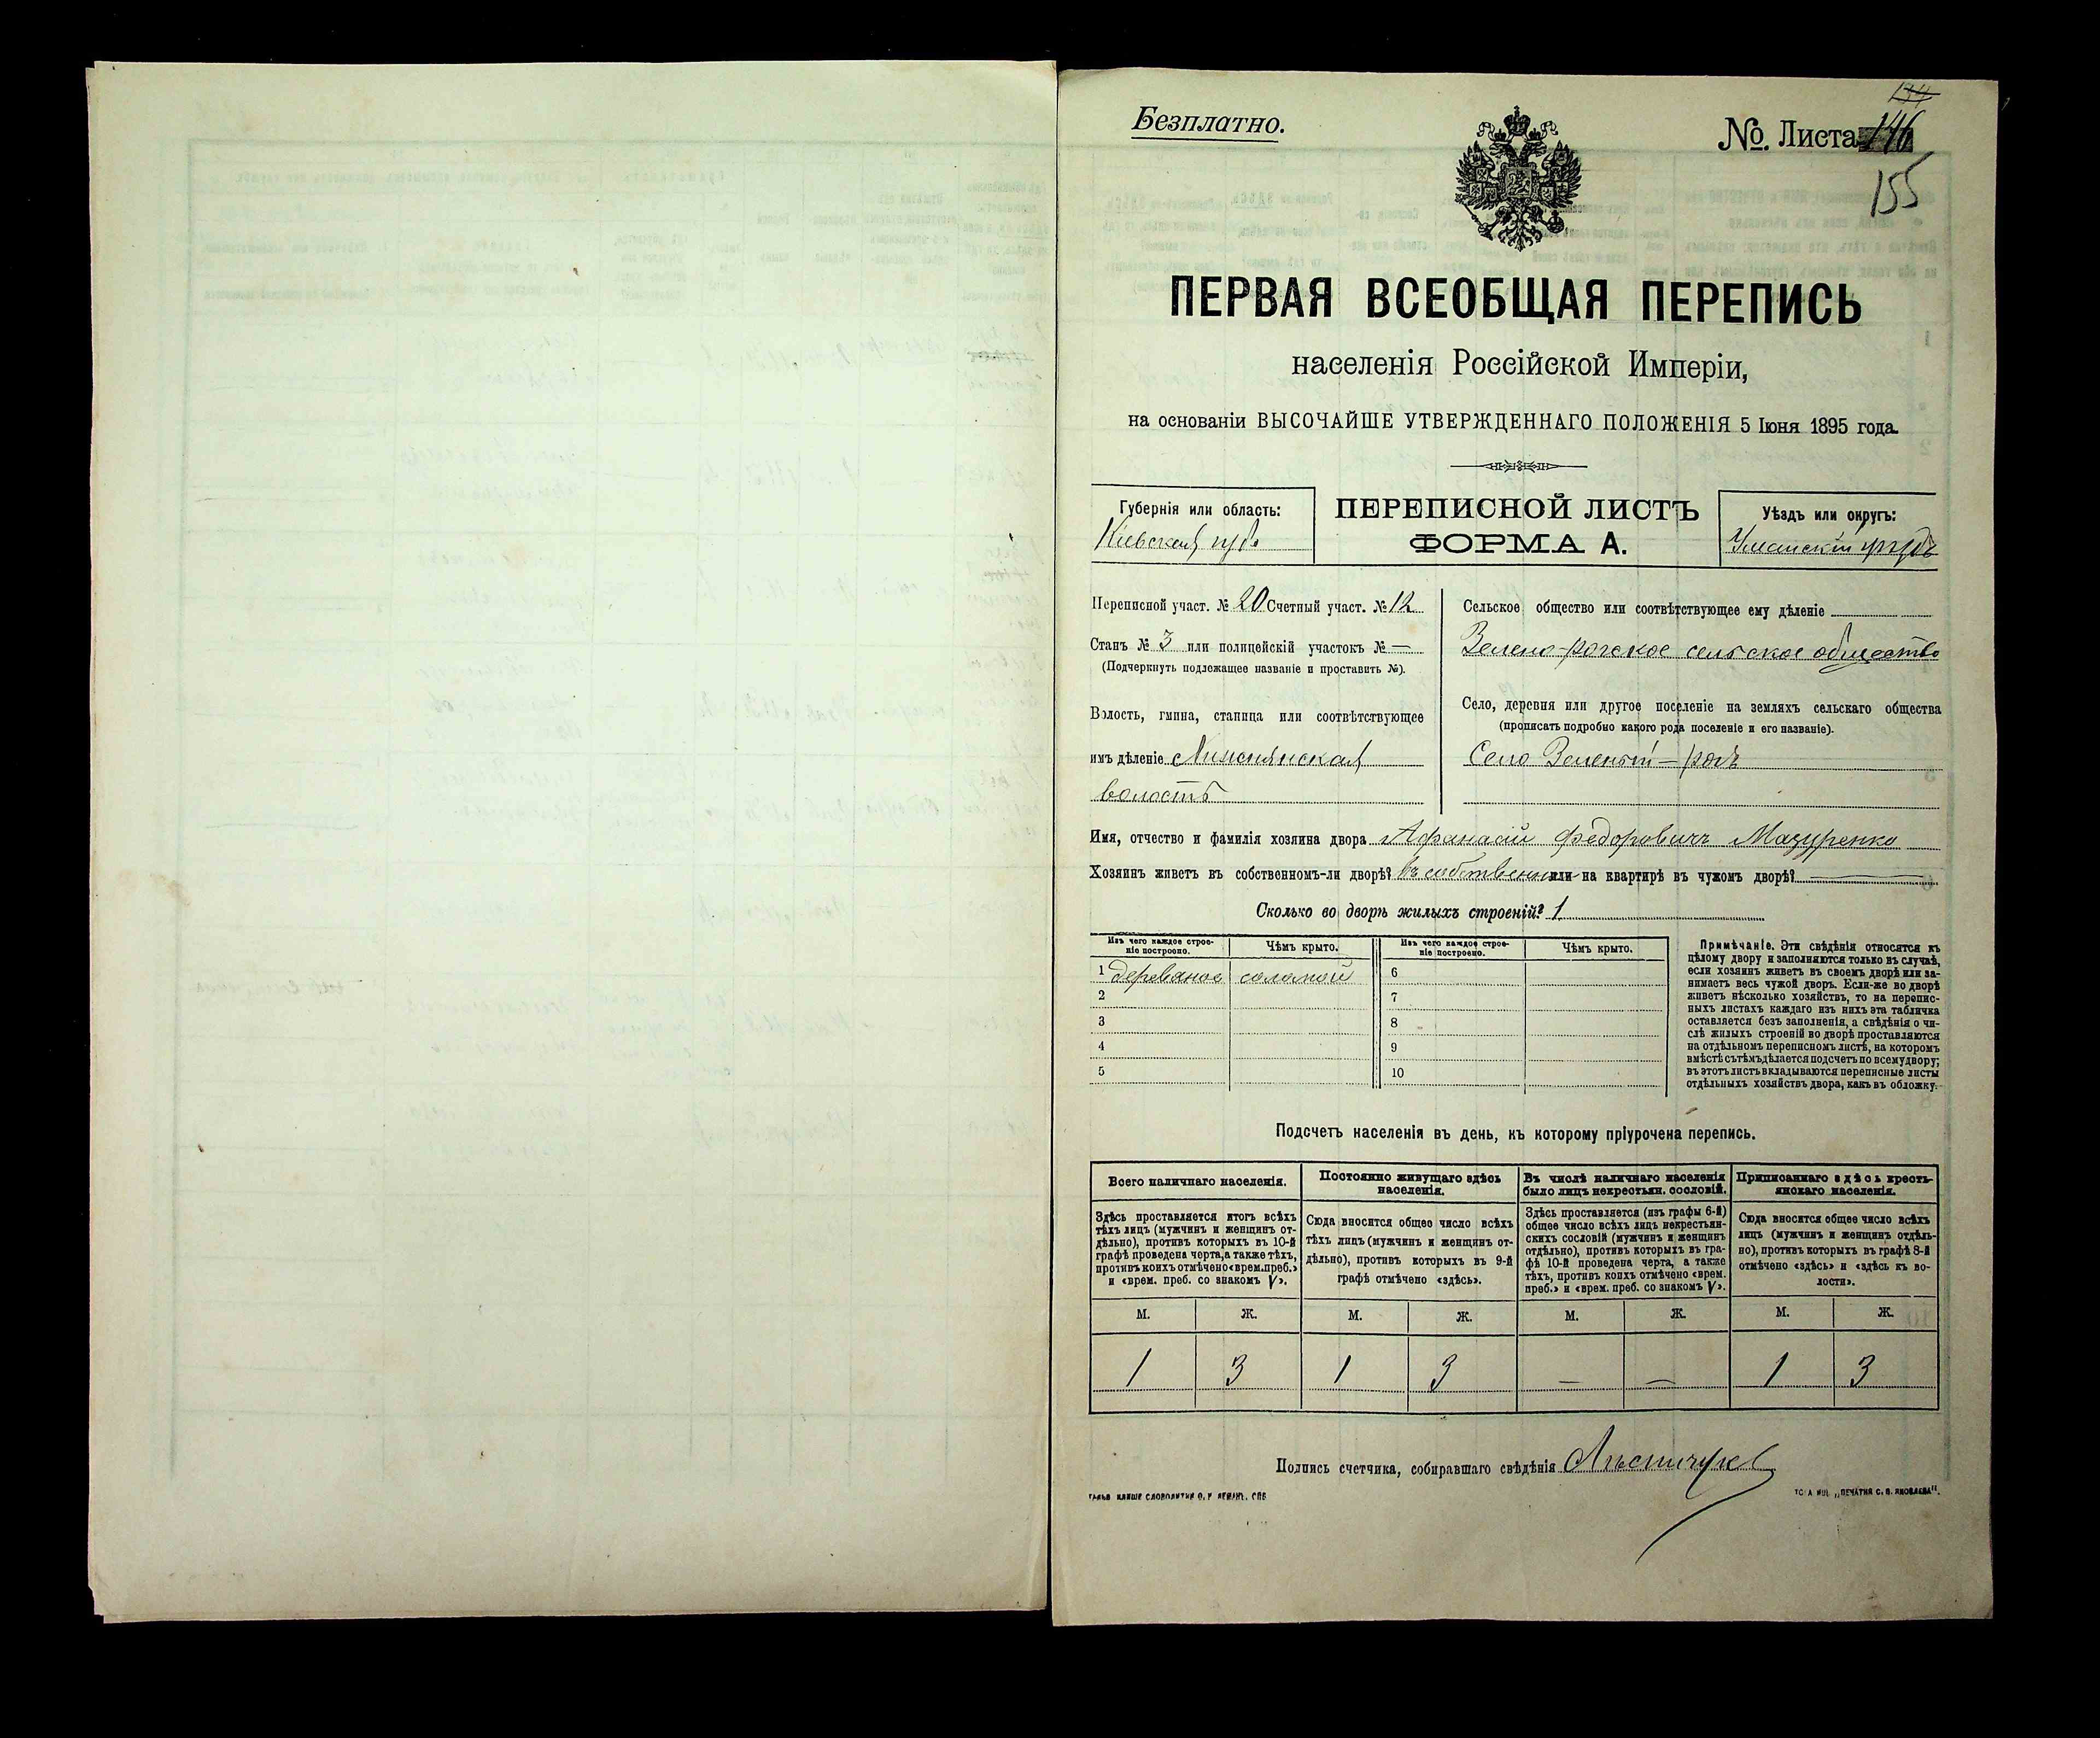 Безплатно.
№. Листа 146
155
ПЕРВАЯ ВСЕОБЩАЯ ПЕРЕПИСЬ
населенія Россійской Имперіи,
на основаніи ВЫСОЧАЙШЕ УТВЕРЖДЕННАГО ПОЛОЖЕНІЯ 5 Іюня 1895 года.
Губернія или область:
Кіевская губ.
ПЕРЕПИСНОЙ ЛИСТЪ
ФОРМА А.
Уѣздъ или округъ:
Уманскій уѣздъ
Переписной участ. № 20 Счетный участ. № 12
Станъ № 3 или полицейскій участокъ № —
(Подчеркнуть подлежащее названіе и проставить №).
Волость, гмина, станица или соотвѣтствующее
имъ дѣленіе
волость
Сельское общество или соотвѣтствующее ему дѣленіе
Зелено-рогское сельское общество
Село, деревня или другое поселеніе на земляхъ сельскаго общества
(прописать подробно какого рода поселеніе и его названіе).
Село Зеленый-рогъ
Имя, отчество и фамилія хозяина двора Афанасій Федоровичъ Мазуренко
Хозяинъ живетъ въ собственномъ-ли дворѣ? Въ собственномъ или на квартирѣ въ чужомъ дворѣ? —
Сколько во дворѣ жилыхъ строеній? 1
Изъ чего каждое строе-
ніе построено.
Чѣмъ крыто.
Изъ чего каждое строе-
ніе построено.
Чѣмъ крыто.
1 деревяное соломой 6
2 7
3 8
4 9
5 10
Примѣчаніе. Эти свѣдѣнія относятся къ
цѣлому двору и заполняются только въ случаѣ,
если хозяинъ живетъ въ своемъ дворѣ или за-
нимаетъ весь чужой дворъ. Если-же во дворѣ
живетъ нѣсколько хозяйствъ, то на перепис-
ныхъ листахъ каждаго изъ нихъ эта табличка
оставляется безъ заполненія, а свѣдѣнія о чи-
слѣ жилыхъ строеній во дворѣ проставляются
на отдѣльномъ переписномъ листѣ, на которомъ
вмѣстѣ съ тѣмъ дѣлается подсчетъ по всему двору;
въ этотъ листъ вкладываются переписные листы
отдѣльныхъ хозяйствъ двора, какъ въ обложку.
Подсчетъ населенія въ день, къ которому пріурочена перепись.
Всего наличнаго населенія.
Здѣсь проставляется итогъ всѣхъ
тѣхъ лицъ (мужчинъ и женщинъ от-
дѣльно), противъ которыхъ въ 10-й
графѣ проведена черта, а также тѣхъ,
противъ коихъ отмѣчено «врем. преб.»
и «врем. преб. со знакомъ V».
Постоянно живущаго здѣсь
населенія.
Сюда вносится общее число всѣхъ
тѣхъ лицъ (мужчинъ и женщинъ от-
дѣльно), противъ которыхъ въ 9-й
графѣ отмѣчено «здѣсь».
Въ числѣ наличнаго населенія
было лицъ некрестьян. сословій.
Здѣсь проставляется (изъ графы 6-й)
общее число всѣхъ лицъ некрестьян-
скихъ сословій (мужчинъ и женщинъ
отдѣльно), противъ которыхъ въ гра-
фѣ 10-й проведена черта, а также
тѣхъ, противъ коихъ отмѣчено «врем.
преб.» и «врем. преб. со знакомъ V».
Приписаннаго здѣсь кресть-
янскаго населенія.
Сюда вносится общее число всѣхъ
лицъ (мужчинъ и женщинъ отдѣль-
но), противъ которыхъ въ графѣ 8-й
отмѣчено «здѣсь» и «здѣсь къ во-
лости».
М. Ж. М. Ж. М. Ж. М. Ж.
1 3 1 3 — — 1 3
Подпись счетчика, собиравшаго свѣдѣнія